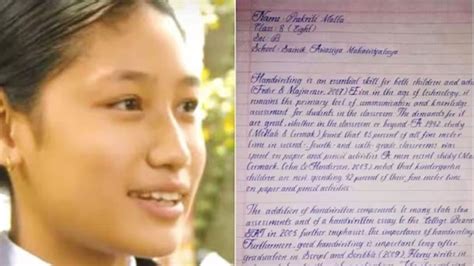 Name : Prakriti Malla
Class : 8 (Eight)
Sec : B
School : Sainik Awasiya Mahavidyalaya
Handwriting is an essential skill for both children and adu
(Feder & Majnemer, 2007) Even in the age of technology, it
remains the primary tool of communication and knowledge
assessment for students in the classroom. The demands for it
are great, whether in the classroom or beyond. A 1992 study
(McHale & Cermak) found that 85 percent of all fine motor
time in second- fourth- and sixth-grade classrooms was
spent on paper and pencil activities. A more recent study (Ma
Cermak, Cohn & Henderson, 2003) noted that kindergarten
children are now spending 42 percent of their fine motor time
on paper and pencil activities.
The addition of handwritten components to many state stan
assessments and of a handwritten essay to the College Board
SAT in 2005 further emphasize the importance of handwriting
Furthermore, good handwriting is important long after
graduation. In Script and Scribble (2009), Florey writes